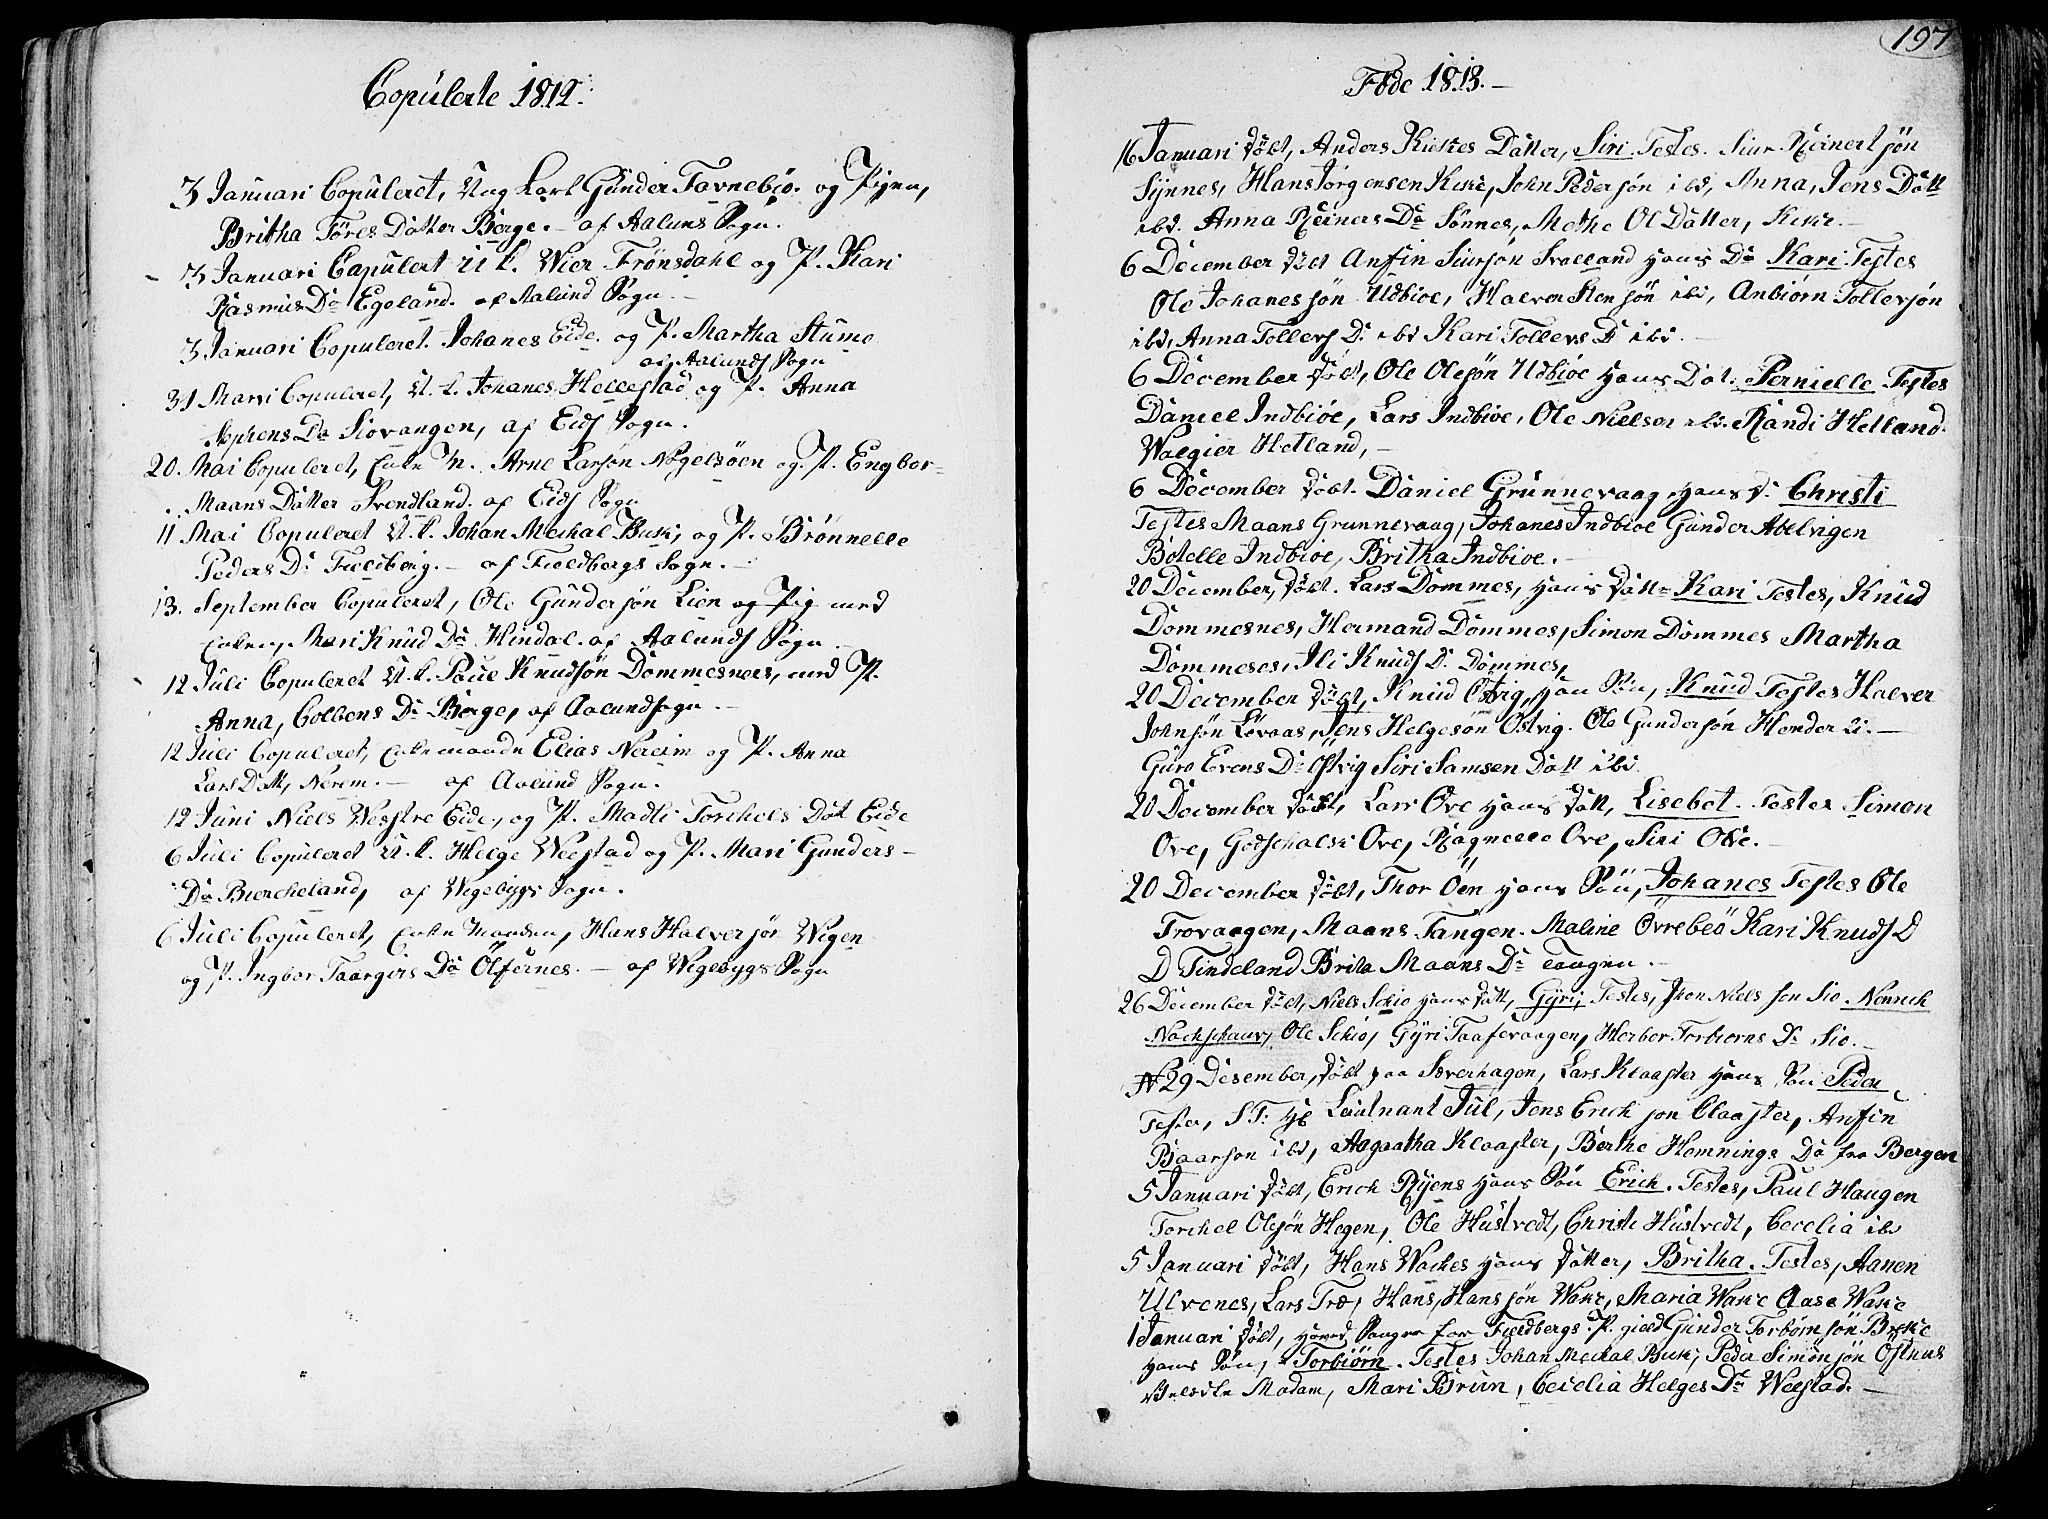 Copulerte 1812.
3 Januari Copuleret, Ung Karl Gunder Tavnebio. og Pigen,
Britha Töres Datter Berge. - af Aalunds Sogn.
3 Januari Capulert U.K. Wier Frönsdahl og P. Kari
Rasmus Dr Egeland. af Aalund Sogn.
3 Januari Copuleret. Johanes Eide. og P. Martha Stumo
af Aalunds Sogn
31 Marsi Copuleret, U.K. Johanes Hellestad og P. Anna
Stephens Dr Siovangen, af Eids Sogn.
20. Mai Copuleret, Enke M. Arne Larsön Nögelsöen og. P. Engbor-
Maans Datter Svendland. af Eids Sogn
11 Mai Copuleret U.K. Johan Meckal Busk, og P. Brönnelle
Peders Dr Fieldberg. - af Fieldbergs Sogn. -
13. September Copuleret, Ole Gundersön Lien og Pig med
Enken, Mari Knud Dr Hindal. af Aalunds Sogn
12 Juli Copuleret U.K. Poul Knudsön Dommesnes, med P.
Anna, Colbens Dr Berge, af Aalundsogn. -
12 Juli Copuleret, Enkemanden Elias Nereim og P. Anna
Lars Datt, Nerem. - af Aalund Sogn.
12 Juni Niels Westre Eide, og P. Madli Torchels Dat Eide
6 Juli Copuleret U.K. Helge Weestad og P. Mari Gunders-
Dr Biercheland, af Wigebygs Sogn.
6 Juli Copuleret, Enke Manden, Hans Halversön Wigen
og P. Ingbor Taargirs Dr Ölfernes. - af Wigebygs Sogn
197
Föde 1813. -
16 Januari döbt, Anders Kirkes Datter, Siri Testes. Siur Reinertsön
Synnes, Hans Jörgensen Kirke, John Pedersön ibd, Anna, Jens Datt
ibd. Anna Reiners Dr Sönnes, Methe Ol Datter, Kirke. -
6 December döbt Anfin Siursön Svalland hans Dr Kari Testes
Ole Johanessön Udbioe, Halven Stensön ibd, Anbiörn Tollevsön
ibd, Anna Tollevs D. ibd Kari Tollevs D ibd. -
6 December döbt, Ole Olesön Udbioe hans Dat. Pernielle Testes
Daniel Indbiöe, Lars Indbioe, Ole Nielsen ibd. Randi Hetland.
Walgier Hetland, -
6 December döbt. Daniel Grunnevaag hans D. Christi
Testes Maans Grunnevaag, Johanes Indbioe Gunder Abelvigen
Botelle Indbioe, Britha Indbioe. -
20 December, döbt. Lars Dommes, hans Datt. Kari Testes, Knud
Dommesnes, Hermand Dommes, Simon Dommes Martha
Dommeses, Ili Knuds D. Dommes,
20 December döbt, Knud Östvig, han Sön, Knud Testes Halver
Johnsön Lövaas, Jens Helgesön Östvig. Ole Gundersön Hender li. -
Guro Evens Dr Östvig Siri Samsen Datt ibd
20 December döbt, Lars Ove hans Datt, Lisebet. Testes Simon
Ove, Godschalk Ove, Ragnelle Ove, Siri Ove. -
20 December döbt, Thor Öen hans Sön, Johanes Testes Ole
Trovaagen, Maans Tangen. Maline Övrebeö Kari Knuds D
D Tindeland Brita Maans Dr Tangen. -
26 December döbt, Niels Schio hans Datt, Gyri, Testes, Jhon Nielssen Sio. Nenrich
Nachschauv, Ole Schio, Gyri Taafevaagen, Herbor Torbiorns Dr Sio. -
N 29 Desember, döbt paa Söverhagen, Lars Kloaster hans Sön Peder
Testes, S.T. Hr Leutnant Jul, Jens Erichson Cloaster, Anfin
Baarson ibd, Aagaatha Kloaster, Berthe Hemnings Dr fra Bergen
5 Januari döbt, Erich Ryens hans Sön Erich. Testes, Paul Haugen
Torchel Olesön Hegen, Ole Hustvedt, Christi Hustvedt, Cecelia ibd
5 Januari döbt, Hans Wackes hans Datter, Britha. Testes, Aanen
Ulvenes, Lars Træ, Hans, Hanssön Wake, Maria Wake Aase Wake
1 Januari döbt, for Fieldbergs P. gield Gunder Torbörnsön Buske
hans Sön, Torbiörn. Testes Johan Meckal Busk, Peder Simönsön Östnus
Madam, Mari Brun, Cecelia Helges Dr Weestad. -